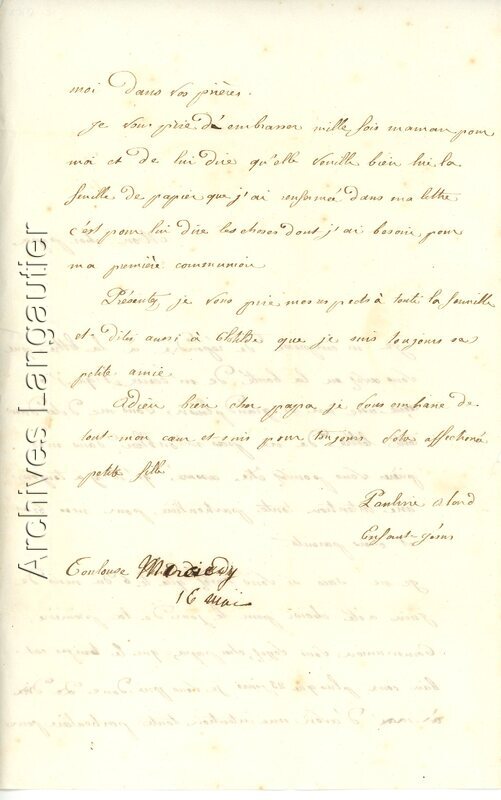 moi dans vos prières.
Je vous prie d'embrasser mille fois maman pour
moi et de lui dire qu'elle veuille bien lui la
feuille de papier que j'ai renfermée dans ma lettre
c'est pour lui dire les choses dont j'ai besoin pour
ma première communion
Présentez, je vous prie mes respects à toute la famille
et dites aussi à Clotilde que je suis toujours sa
petite amie.
Adieu bien cher papa je vous embrasse de
tout mon cœur et suis pour toujours votre affectionné
petite fille
Pauline
Enfant-Jésus
Toulouse
16 mai
Archives Langautier